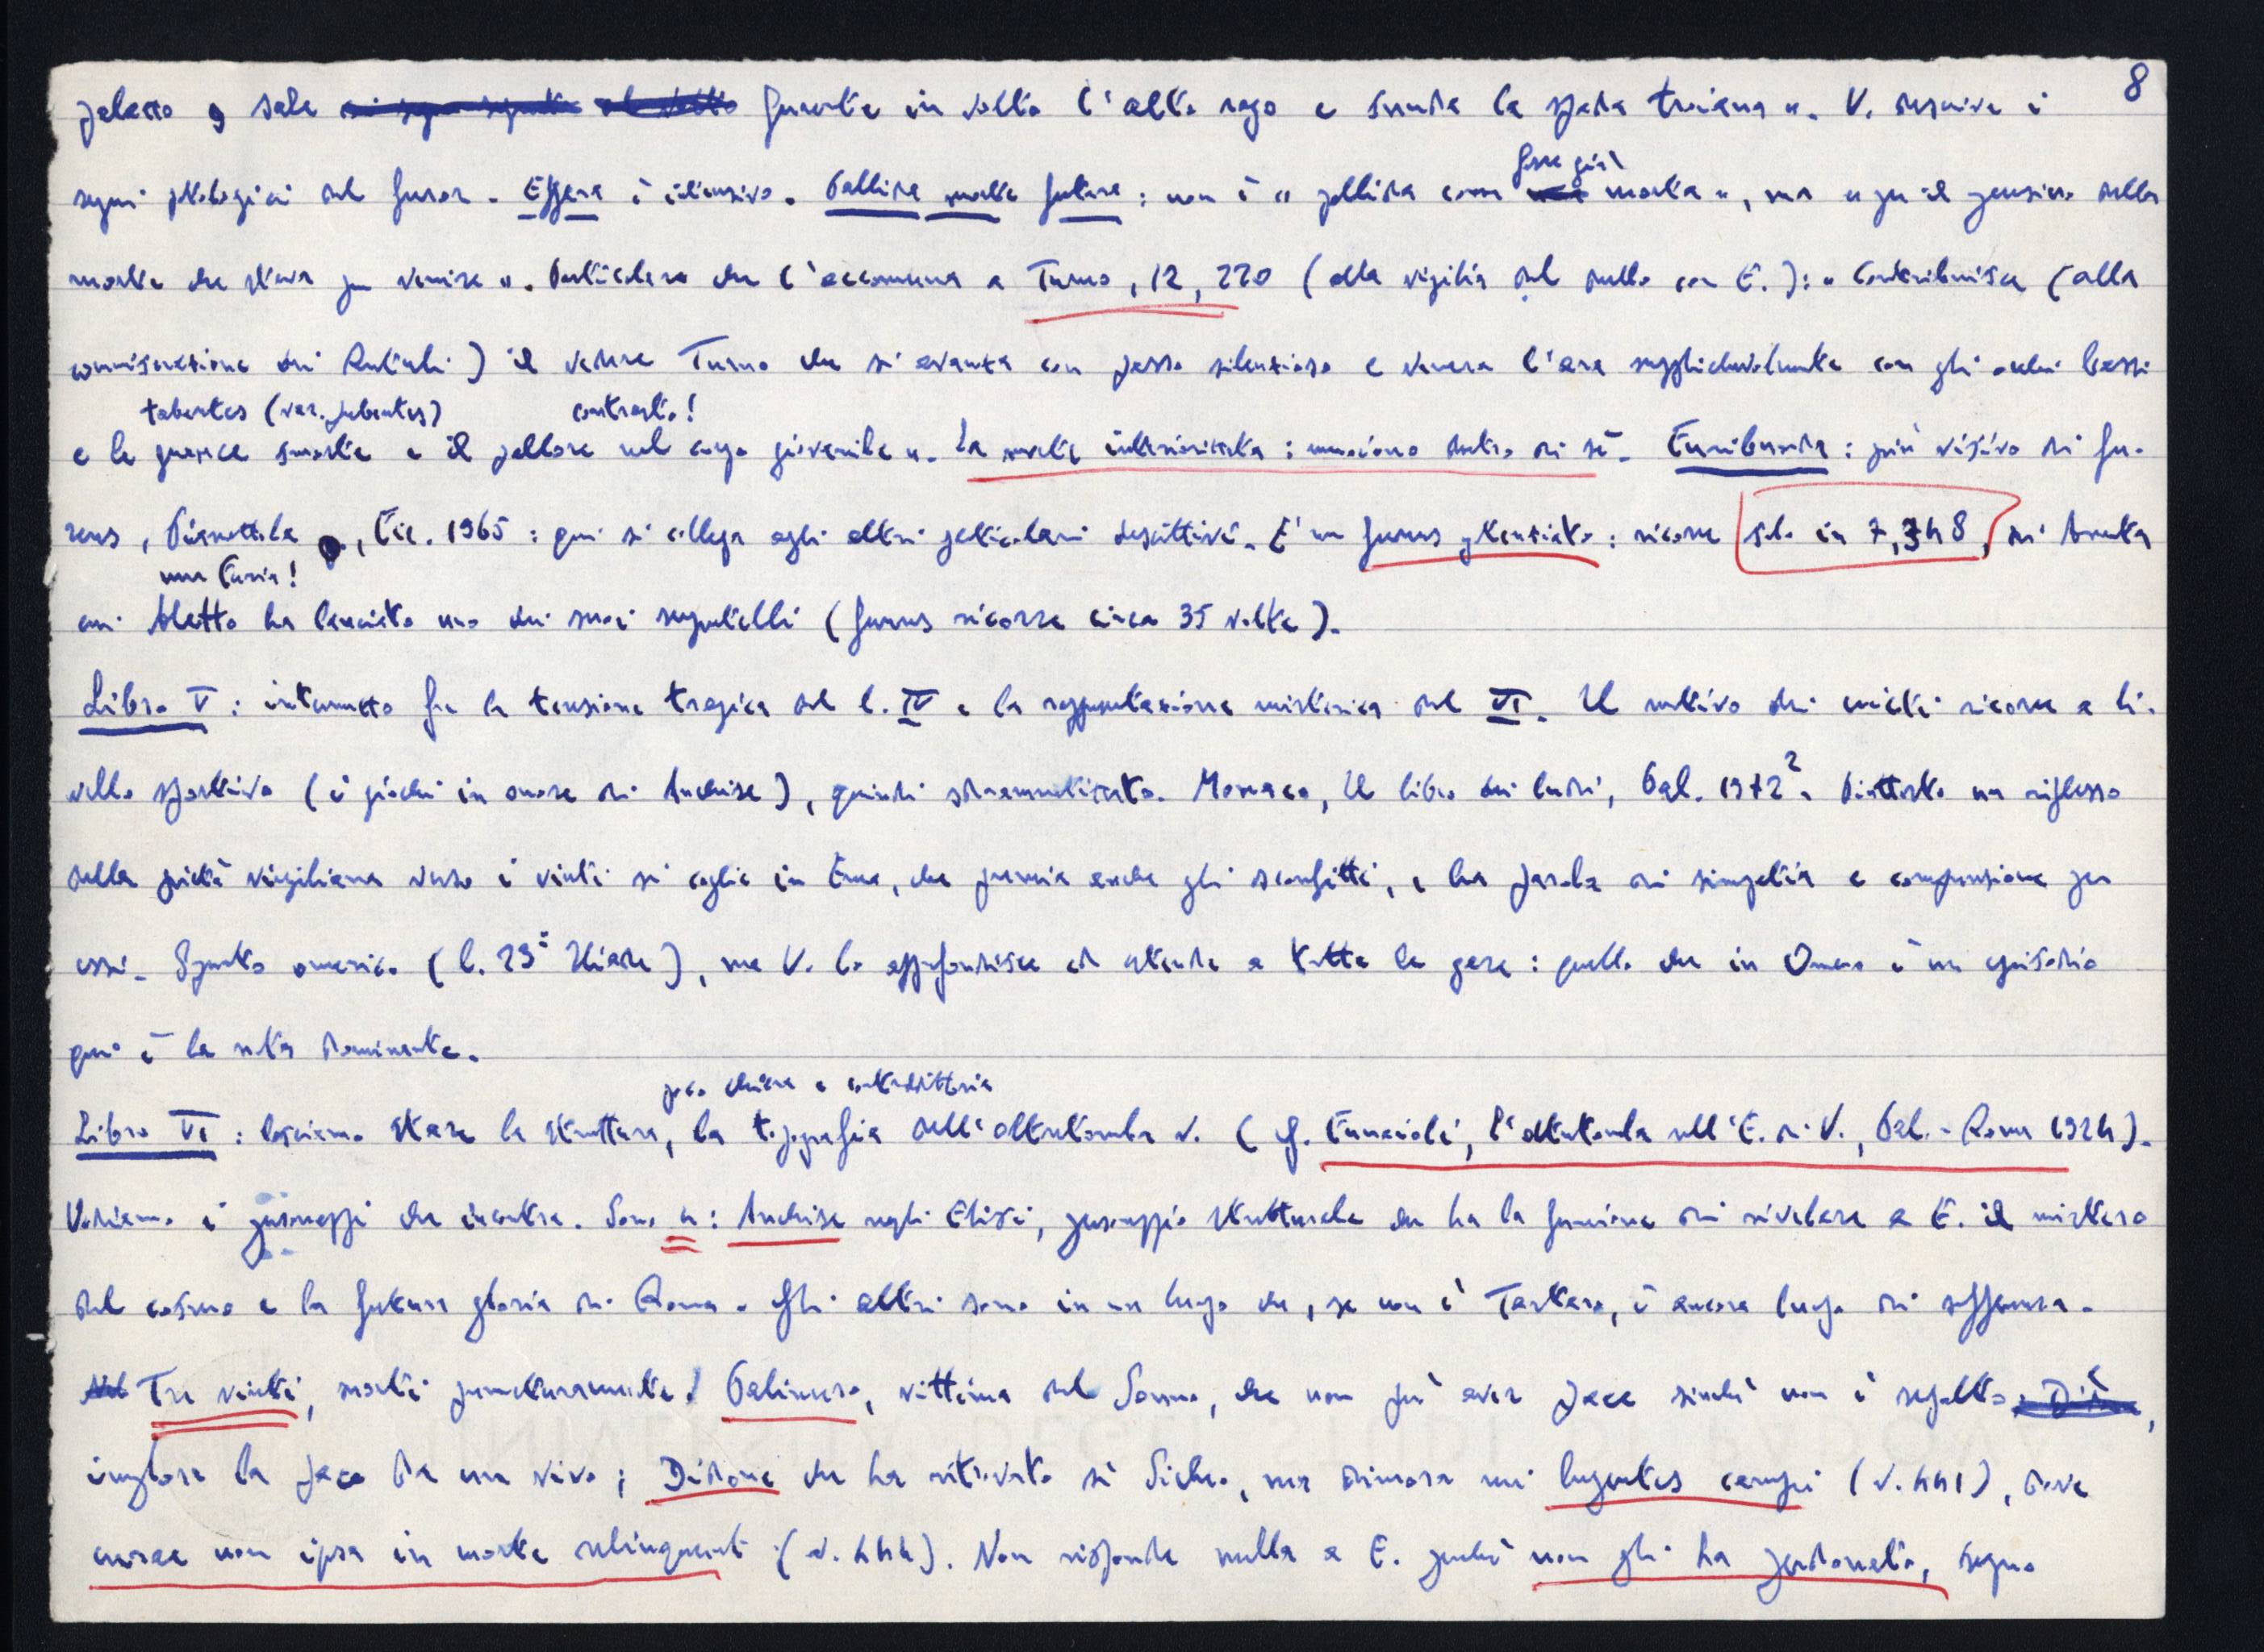 8
palazzo, sale furente in volto l'alto rogo e snuda la spada troiana ». V. descrive i
segni patologici del furor. Effera è intensivo. Pallida morte futura : non è « pallida come fosse già morta », ma « per il pensiero della
morte che stava per venire ». Particolare che l'accomuna a Turno, 12, 220 (alla vigilia del duello con E.): « Contribuisce (alla
commiserazione dei Rutuli) il vedere Turno che si avanza con passo silenzioso e venera l'ara supplichevolmente con gli occhi bassi
tabentes (var. pubentes) contrasto!
e le guance smorte e il pallore nel corpo giovenile ». La morte interiorizzata : muoiono dentro di sé. Furibunda : più visivo di fu-
rens, Pianezzola, Tic. 1965 : qui si collega agli altri particolari descrittivi. E' un furens potenziato : ricorre solo in 7, 348, di Amata
una Furia!
cui Aletto ha lanciato uno dei suoi serpentelli (furens ricorre circa 35 volte).
Libro V : intermezzo fra la tensione tragica del l. IV e la rappresentazione misterica del VI. Il motivo dei vinti ricorre a li-
vello sportivo (i giochi in onore di Anchise), quindi sdrammatizzato. Monaco, Il libro dei ludi, Pal. 1972². Piuttosto un riflesso
della pietà virgiliana verso i vinti si coglie in Enea, che premia anche gli sconfitti, e ha parole di simpatia e comprensione per
essi. Spunto omerico (l. 23° Iliade), ma V. lo approfondisce ed estende a tutte le gare : quello che in Omero è un episodio
qui è la nota dominante.
poco chiara e contraddittoria
Libro VI : lasciamo stare la struttura, la topografia dell'oltretomba v. (cf. Funaioli, L'oltretomba nell'E. di V., Pal. - Roma 1924).
Vediamo i personaggi che incontra. Sono 4 : Anchise negli Elisi, personaggio strutturale che ha la funzione di rivelare a E. il mistero
del cosmo e la futura gloria di Roma. Gli altri sono in un luogo che, se non è Tartaro, è ancora luogo di sofferenza.
Tre vinti, morti prematuramente! Palinuro, vittima del Sonno, che non può aver pace sinché non è sepolto,
implora la pace da un vivo; Didone che ha ritrovato sì Sicheo, ma dimora nei lugentes campi (v. 441), dove
curae non ipsa in morte relinquunt (v. 444). Non risponde nulla a E. perché non gli ha perdonato, segno